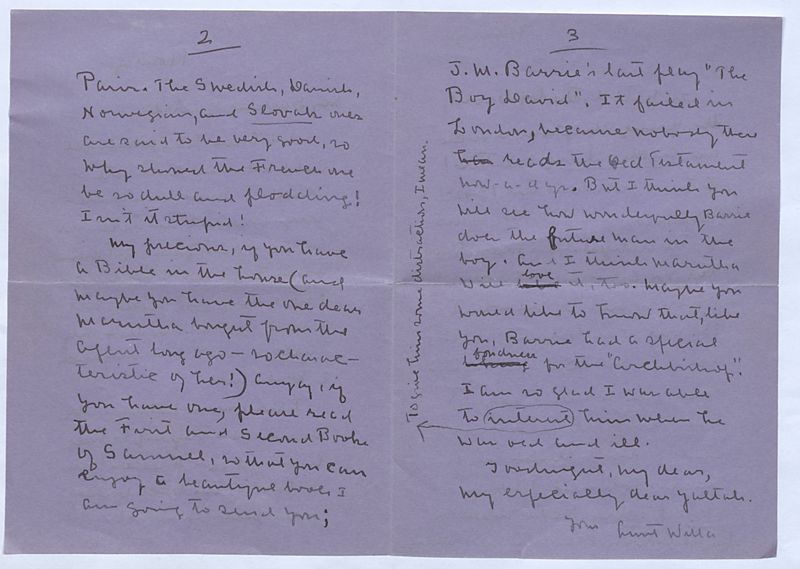 2
Paris. The Swedish, Danish,
Norwegian, and Slovak ones
are said to be very good, so
why should the French one
be so dull and plodding!
Isn't it stupid!
My precious, if you have
a Bible in the house (and
maybe you have the one dear
Marutha bought from the
agent long ago — so charac-
teristic of her!) anyway, if
you have one, please read
the First and Second Books
of Samuel, so that you can
enjoy a beautiful book I
am going to send you;
3
J. M. Barrie's last play "The
Boy David". It failed in
London, because nobody there
has reads the Old Testament
now-a-days. But I think you
will see how wonderfully Barrie
does the future man in the
boy. And I think Marutha
will love it, too. Maybe you
would like to know that, like
you, Barrie had a special
fondness for the "Archbishop".
I am so glad I was able
to interest him when he
was old and ill.
Goodnight, my dear,
my especially dear Yaltah.
Your Aunt Willa
To give him some distraction, I mean.